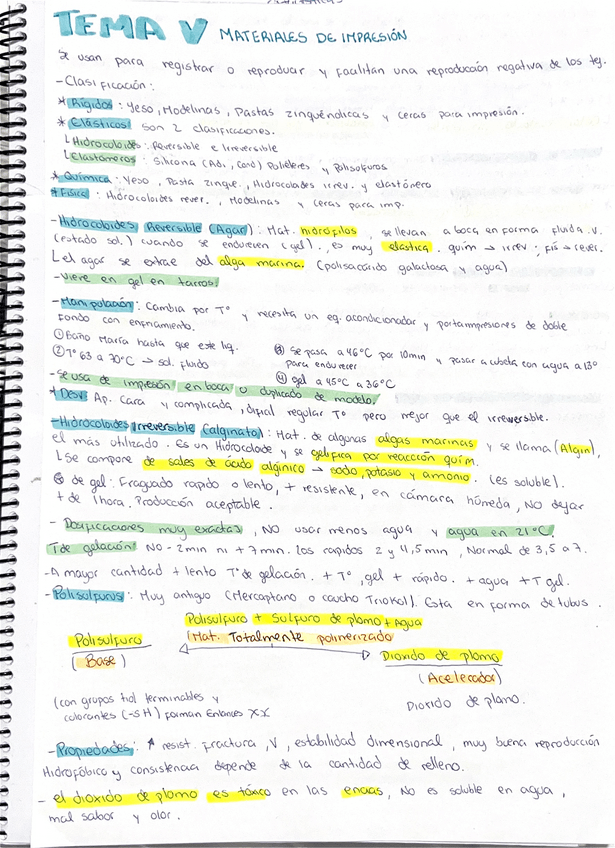 TEMA V MATERIALES DE IMPRESIÓN
Se usan para registrar o reproducir y facilitan una reproducción negativa de los tej.
- Clasificación:
* Rígidos: Yeso, Modelinas, Pastas zinquenólicas y ceras para impresión.
* Elásticos son 2 clasificaciones.
L Hidrocoloides: Reversible e Irreversible
L Elastómeros: Silicona (Adi, Cond) Poliéteres y Polisulfuros
* Química: Yeso, Pasta Zinque, Hidrocoloides irrev. y elastónero
* Física: Hidrocoloides rever, Modelinas y Ceras para imp.
- Hidrocoloides Reversible (Agar): Mat. hidrófilos, se llevan a boca en forma fluida. V.
(estado sol.) cuando se endurecen (gel)., es muy elastica. quim → irrev; fis → rever.
L el agar se extrae del alga marina. (polisacárido galactosa y agua)
- Viene en gel en tarros.
- Manipulación: Cambia por T° y necesita un eq. acondicionador y portaimpresiones de doble
fondo con enfriamiento.
① Baño María hasta que este liq.
② T° 63 a 70°C → sol. fluido
③ Se pasa a 46°C por 10min y pasar a cubeta con agua a 13°
para endurecer
④ gel a 45°C a 36°C
- Se usa de impresión en boca o duplicado de modelo.
* Desv: Ap. Cara y complicada, dificil regular T° pero mejor que el irreversible.
- Hidrocoloides Irreversible (alginato): Mat. de algunas algas marinas y se llama (Algin),
el más utilizado. Es un Hidrocoloide y se gelifica por reacción quím.
L Se compone de sales de ácido algínico → sodio, potasio y amonio. (es soluble).
de gel: Fraguado rapido o lento, + resistente, en cámara húmeda, No dejar
+ de 1 hora. Producción aceptable.
- Dosificaciones muy exactas, NO usar menos agua y agua en 21°C.
T de gelación: No - 2min ni + 7 min. Los rapidos 2 y 4,5 min, Normal de 3,5 a 7.
- A mayor cantidad + lento T° de gelación. + T°, gel + rápido. + agua + T gel.
- Polisulfuros: Muy antiguo (Mercaptano o caucho Triokol). Esta en forma de tubos.
Polisulfuro + Sulfuro de plomo + Agua
(Mat. Totalmente polimerizado
Polisulfuro
(Base)
Dioxido de plomo
(Acelerador)
(con grupos tiol terminables y
colorantes (-SH) forman Enlaces XX
Dioxido de plano.
- Propiedades: ↑ resist. fractura, V, estabilidad dimensional, muy buena reproducción
Hidrofóbico y consistencia depende de la cantidad de relleno.
- el dioxido de plomo es tóxico en las encias, No es soluble en agua,
mal sabor y olor.